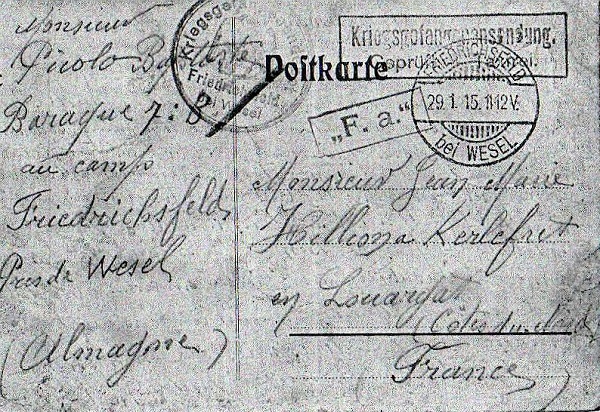 Monsieur
Picolo
Baraque 7:B
au camp
Friedrichsfeld
Près de Wesel
(Almagne)
Kriegsgef
Friedrichsfeld
bei Wesel
Postkarte
Kriegsgefangenensendung.
Geprüft
„F. a.“
FRIEDRICHSFELD
29.1.15.11-12V.
bei WESEL
Monsieur Jean Marie
Kerlefret
en Louargat
(Côtes du Nord)
France